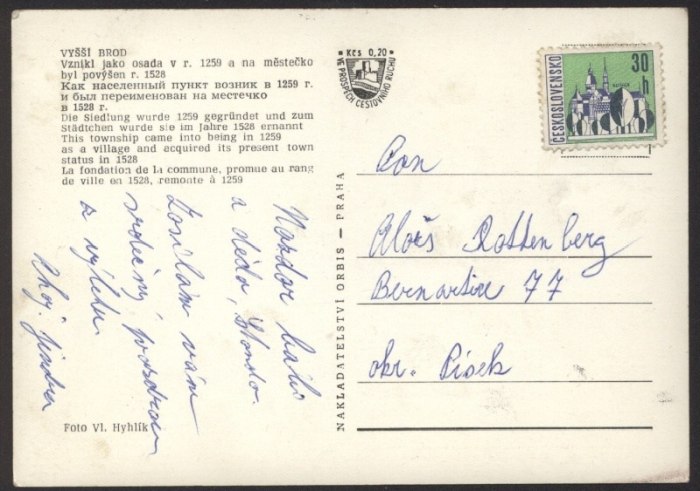 VYŠŠÍ BROD
Vznikl jako osada v r. 1259 a na městečko
byl povýšen r. 1528
Как населенный пункт возник в 1259 г.
и был переименован на местечко
в 1528 г.
Die Siedlung wurde 1259 gegründet und zum
städtchen wurde sie im Jahre 1528 ernannt
This township came into being in 1259
as a village and acquired its present town
status in 1528
La fondation de La commune, promue au rang
de ville en 1528, remonte à 1259
Nazdar babi
a dědo, Stando.
Zasílám vám
srdečný pozdrav
z výletu.
Ahoj. Jindra
Foto Vl. Hyhlík
NAKLADATELSTVÍ ORBIS — PRAHA
Kčs 0,20
VE PROSPĚCH CESTOVNÍHO RUCHU
ČESKOSLOVENSKO
30
h
Pan
Alois Rottenberg
Bernartice 77
okr. Písek